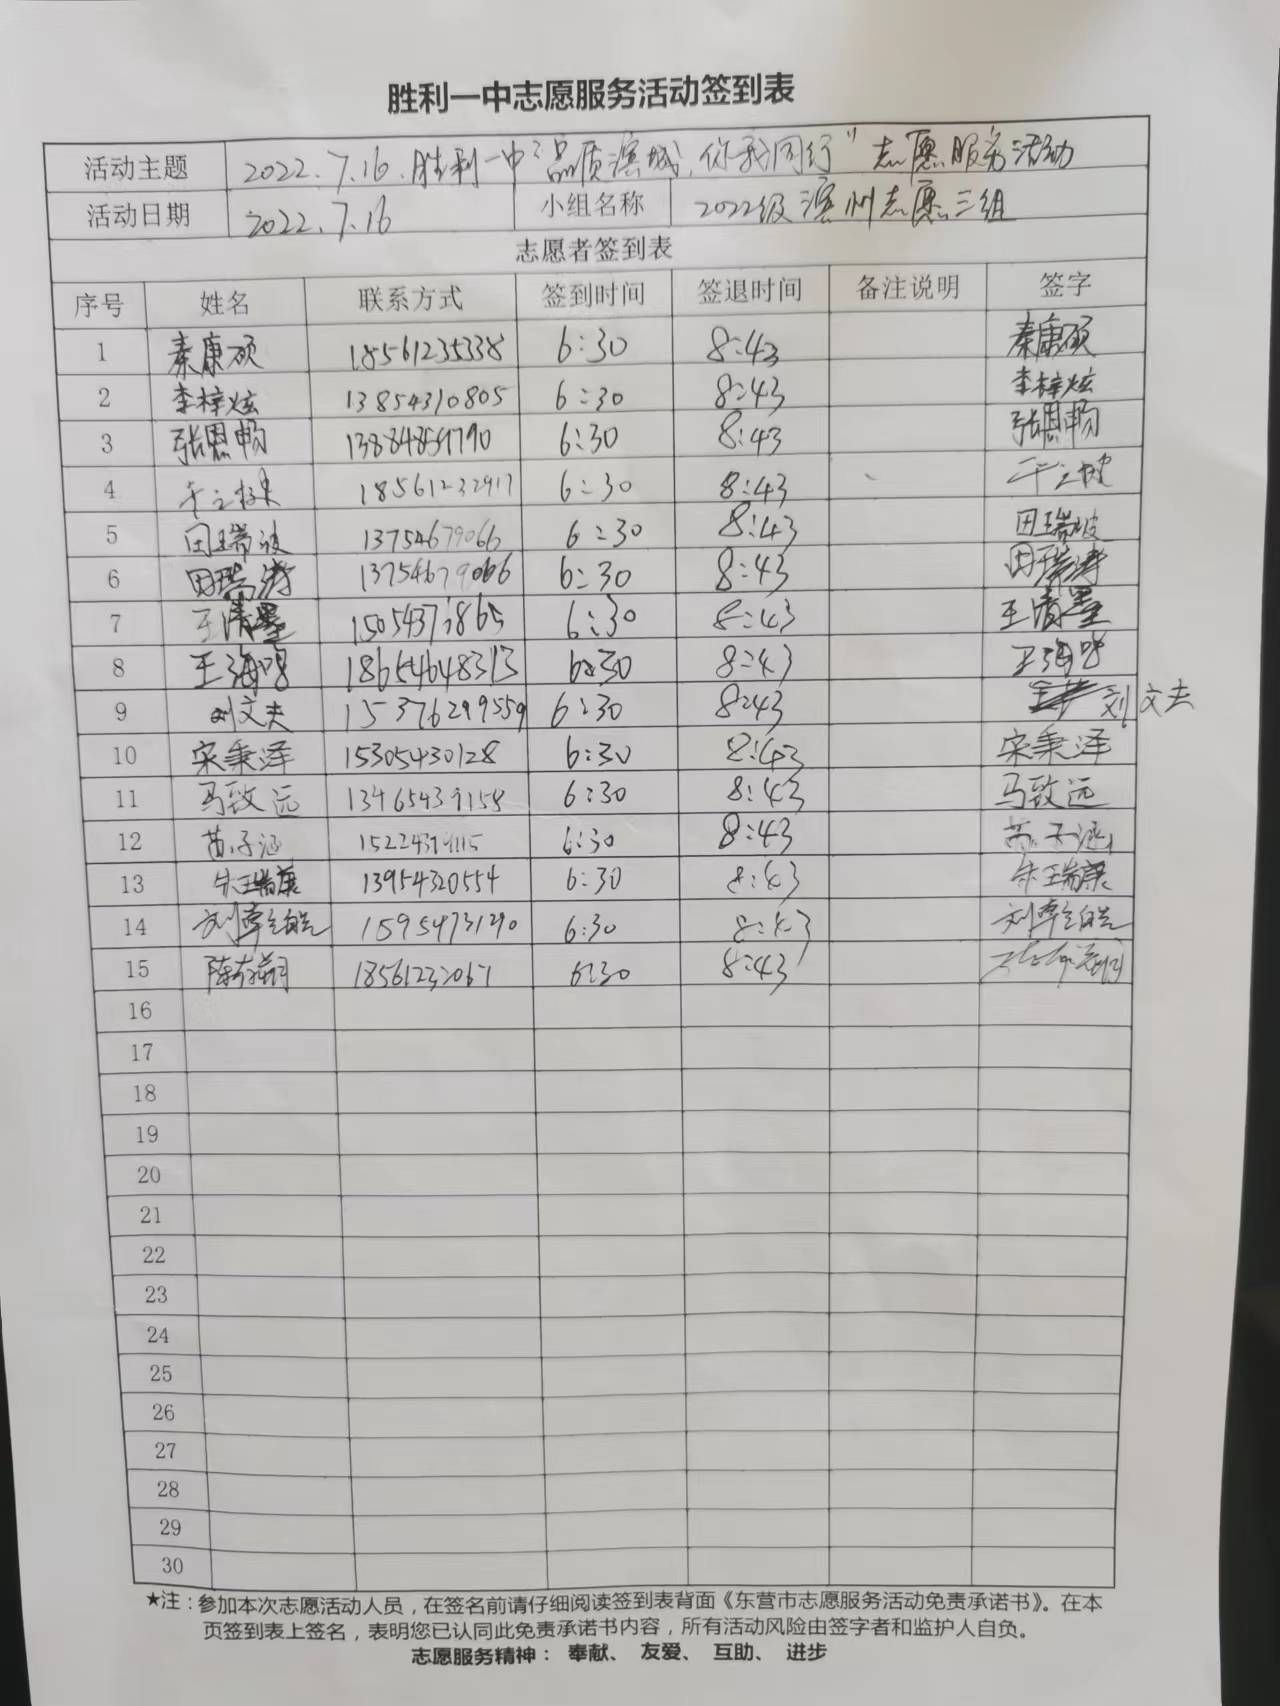 胜利一中志愿服务活动签到表
活动主题 2022.7.16.胜利一中"品质滨城,你我同行"志愿服务活动
活动日期 2022.7.16 小组名称 2022级滨州志愿三组
志愿者签到表
序号 姓名 联系方式 签到时间 签退时间 备注说明 签字
1 秦康硕 18561235338 6:30 8:43 秦康硕
2 李梓炫 13854310805 6:30 8:43 李梓炫
3 张恩畅 13884859790 6:30 8:43 张恩畅
4 18561232917 6:30 8:43
5 田瑞波 13754679066 6:30 8:43 田瑞波
6 田瑞涛 13754679066 6:30 8:43 田瑞涛
7 王清墨 6:30 8:43 王清墨
8 王海鸣 18654648313 6:30 8:43 王海鸣
9 刘文夫 15376299559 6:30 8:43 刘文夫
10 宋秉泽 15305430128 6:30 8:43 宋秉泽
11 马致远 13465439158 6:30 8:43 马致远
12 苗子涵 6:30 8:43 苗子涵
13 朱瑞康 13954320554 6:30 8:43 朱瑞康
14 15954731290 6:30 8:43
15 18561232067 6:30 8:43
16
17
18
19
20
21
22
23
24
25
26
27
28
29
30
★注:参加本次志愿活动人员,在签名前请仔细阅读签到表背面《东营市志愿服务活动免责承诺书》。在本
页签到表上签名,表明您已认同此免责承诺书内容,所有活动风险由签字者和监护人自负。
志愿服务精神: 奉献、 友爱、 互助、 进步